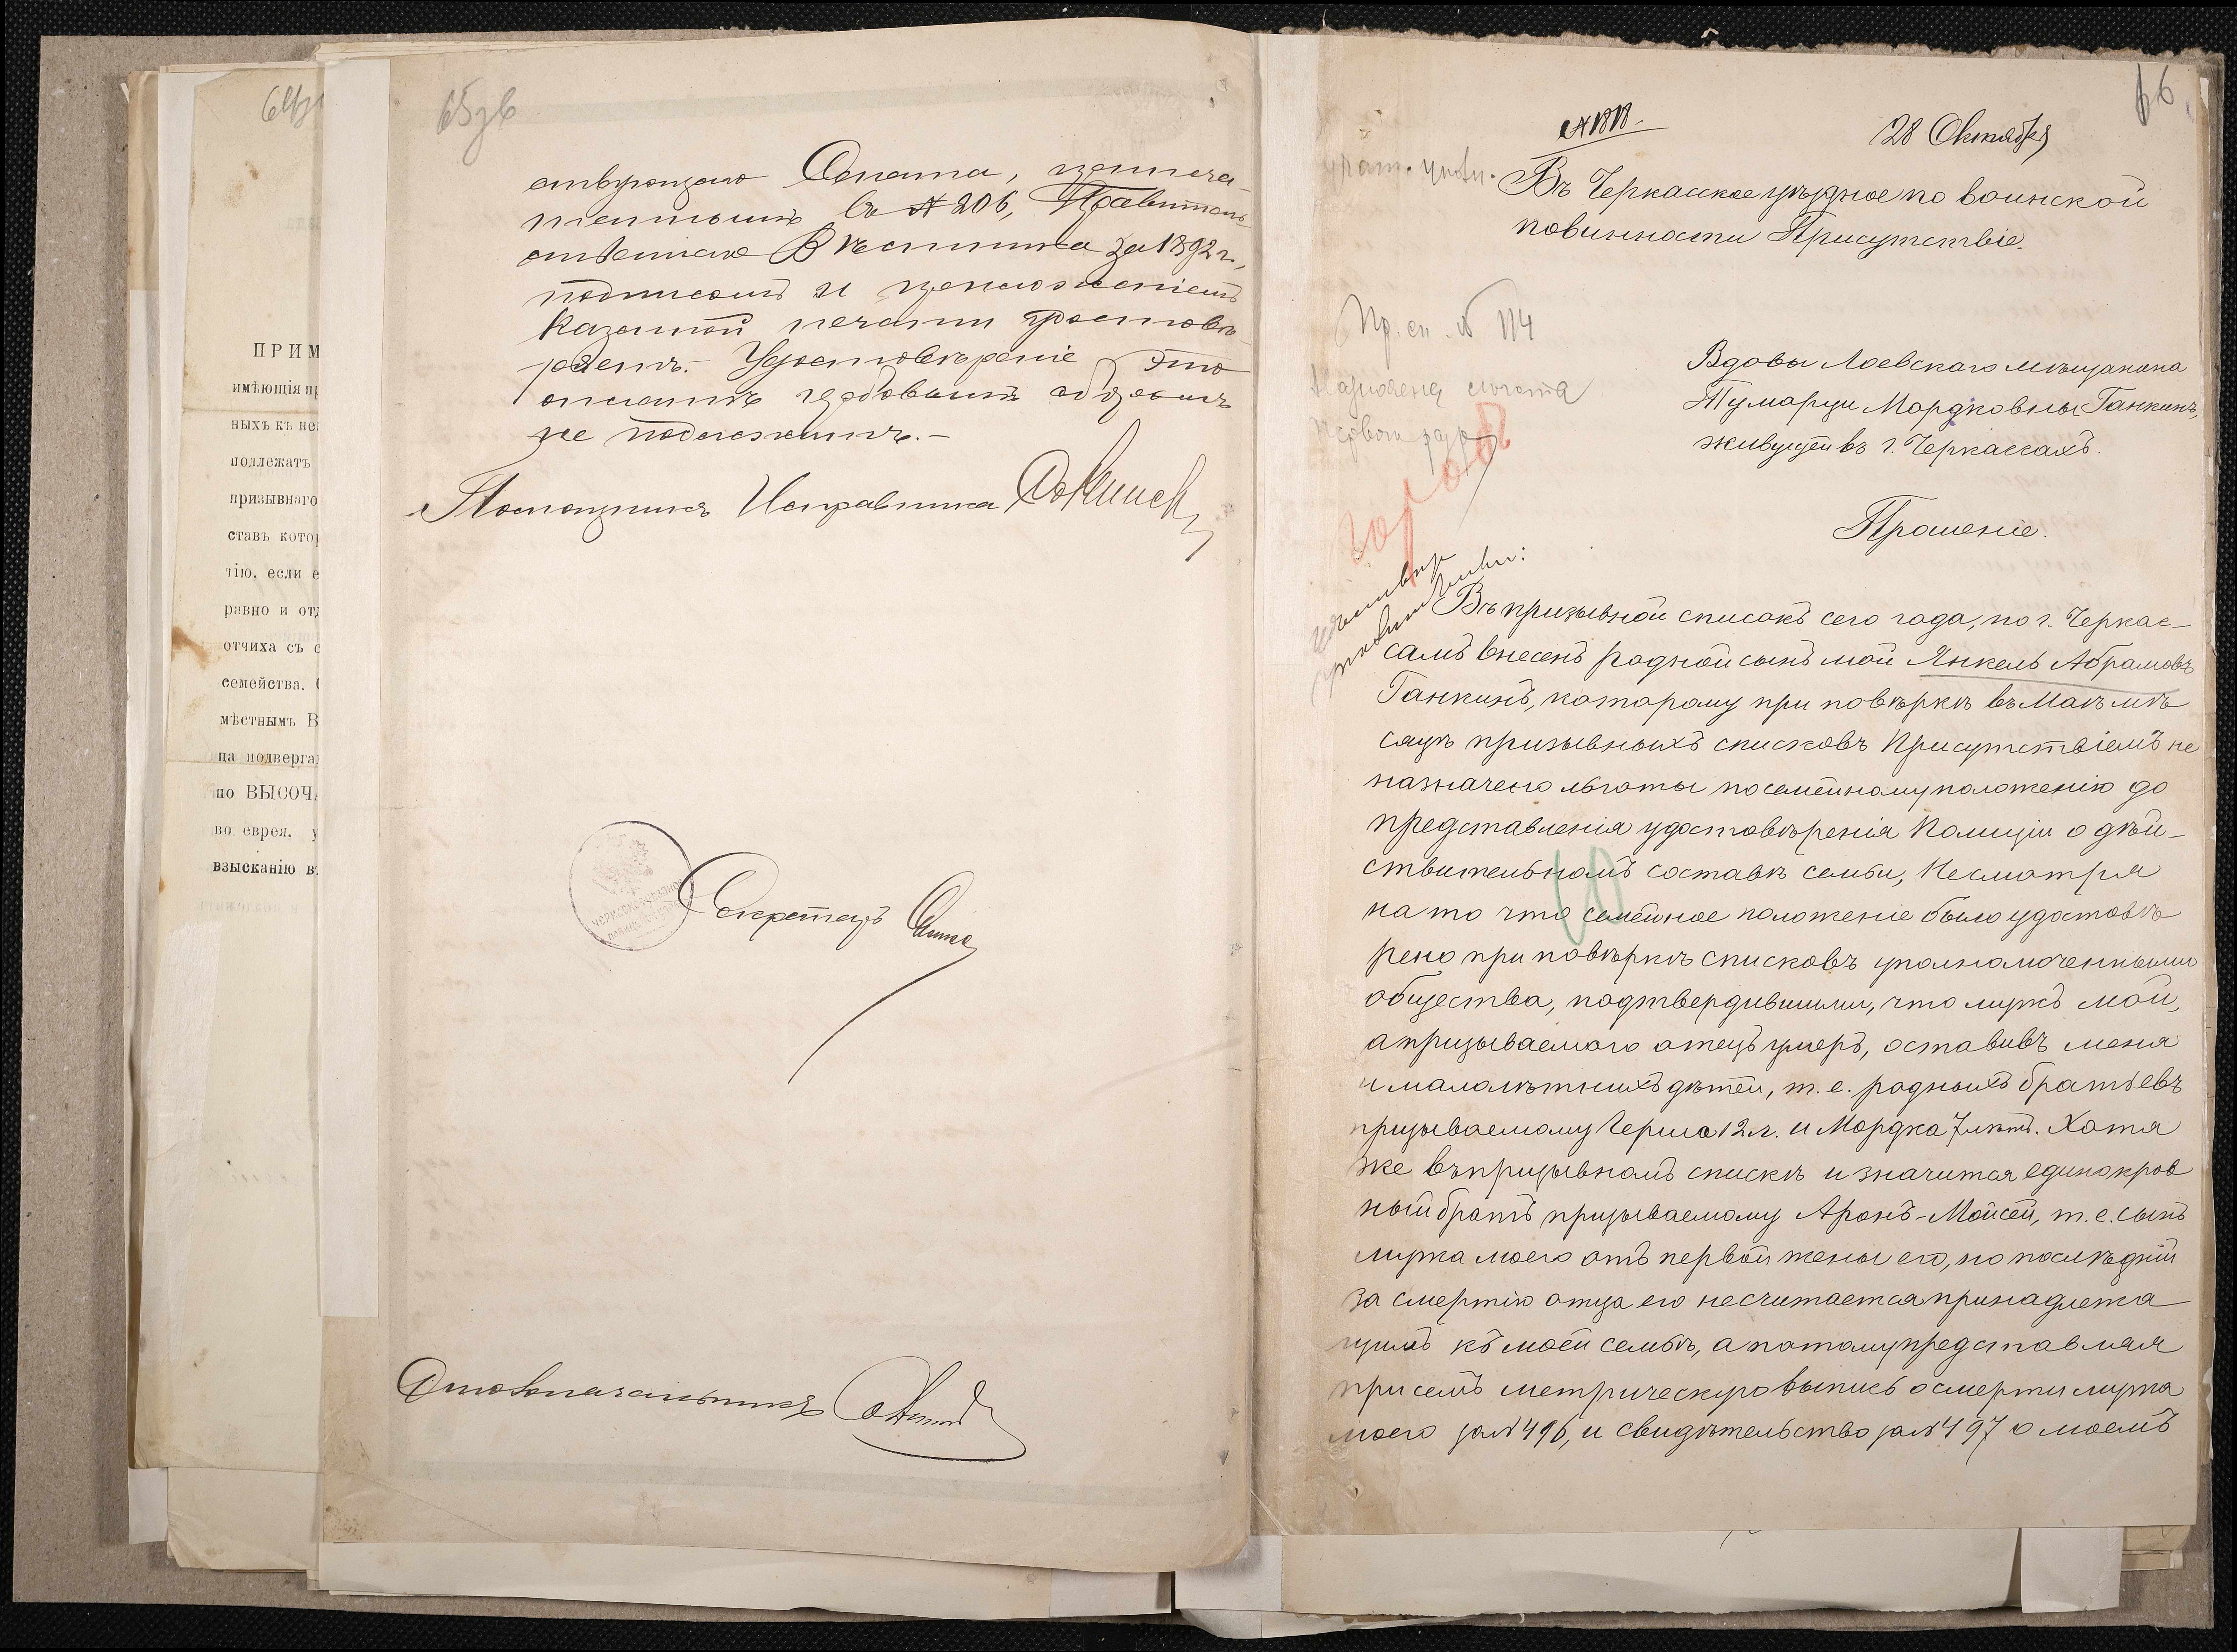 65зв
ствующаго Сената, напеча-
таннымъ въ № 206, Правитель-
ственнаго Вѣстника за 1892 г.,
подписомъ и приложеніемъ
казенной печати удостовѣ-
ряетъ. Удостовѣреніе это
оплатѣ гербовымъ сборомъ
не подлежитъ.-
Помощникъ Исправника
Секретарь
Столоначальникъ
ПРИМ
имѣющія пр
ныхъ къ не
подлежатъ
призывнаго
ставъ котор
тію, если е
равно и отд
отчиха съ с
семейства. 
мѣстнымъ В
па подверга
по ВЫСОЧ
во еврея, у
взысканію в
66
№ 1818.
28 Октября
Въ Черкасское уѣздное по воинской
повинности Присутствіе.
Пр. сп. № 114
Назначена льгота
перваго разр
Вдовы Лоевскаго мѣщанина
Тумарци Мордковны Ганкинъ,
живущей въ г. Черкассахъ.
Прошеніе.
Въ призывной списокъ сего года, по г. Черкас-
самъ внесенъ родной сынъ мой Янкель Абрамовъ
Ганкинъ, которому при повѣркѣ въ Маѣ мѣ
сяцѣ призывныхъ списковъ Присутствіемъ не
назначено льготы по семейному положенію до
представленія удостовѣренія Полиціи о дѣй-
ствительномъ составѣ семьи, Несмотря
на то что семейное положеніе было удостовѣ
рено при повѣркѣ списковъ уполномоченными
общества, подтвердившими, что мужъ мой,
а призываемаго отецъ умеръ, оставивъ меня
и малолѣтнихъ дѣтей, т. е. родныхъ братьевъ
призываемому Герша 12 л. и Мордка 7 лѣтъ. Хотя
же въ призывномъ спискѣ и значится единокров
ный братъ призываемому Аронъ-Мойсей, т. е. сынъ
мужа моего отъ первой жены его, но послѣдній
за смертію отца его несчитается принадлежа
щимъ къ моей семьѣ, а потому представляя
при семъ метрическую выпись о смерти мужа
моего за № 496, и свидѣтельство за № 497 о моемъ